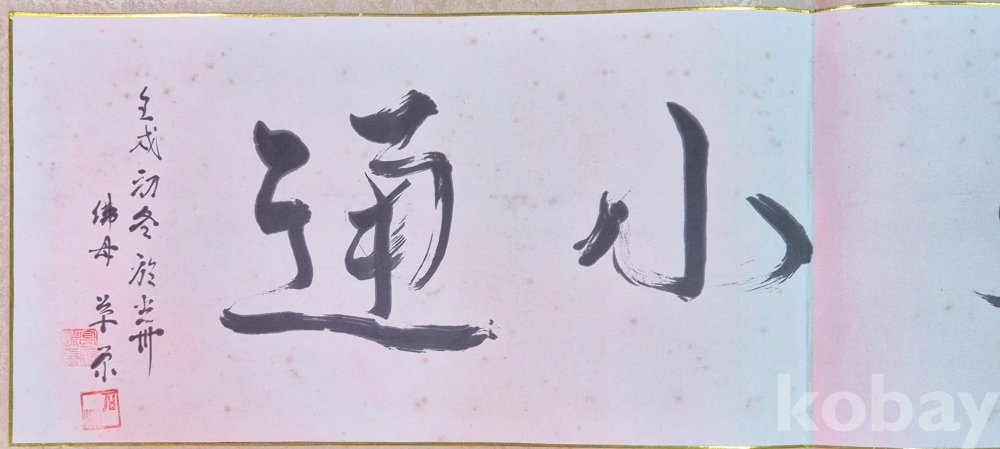 小通
壬戌初冬於光州
佛母 草
kobay